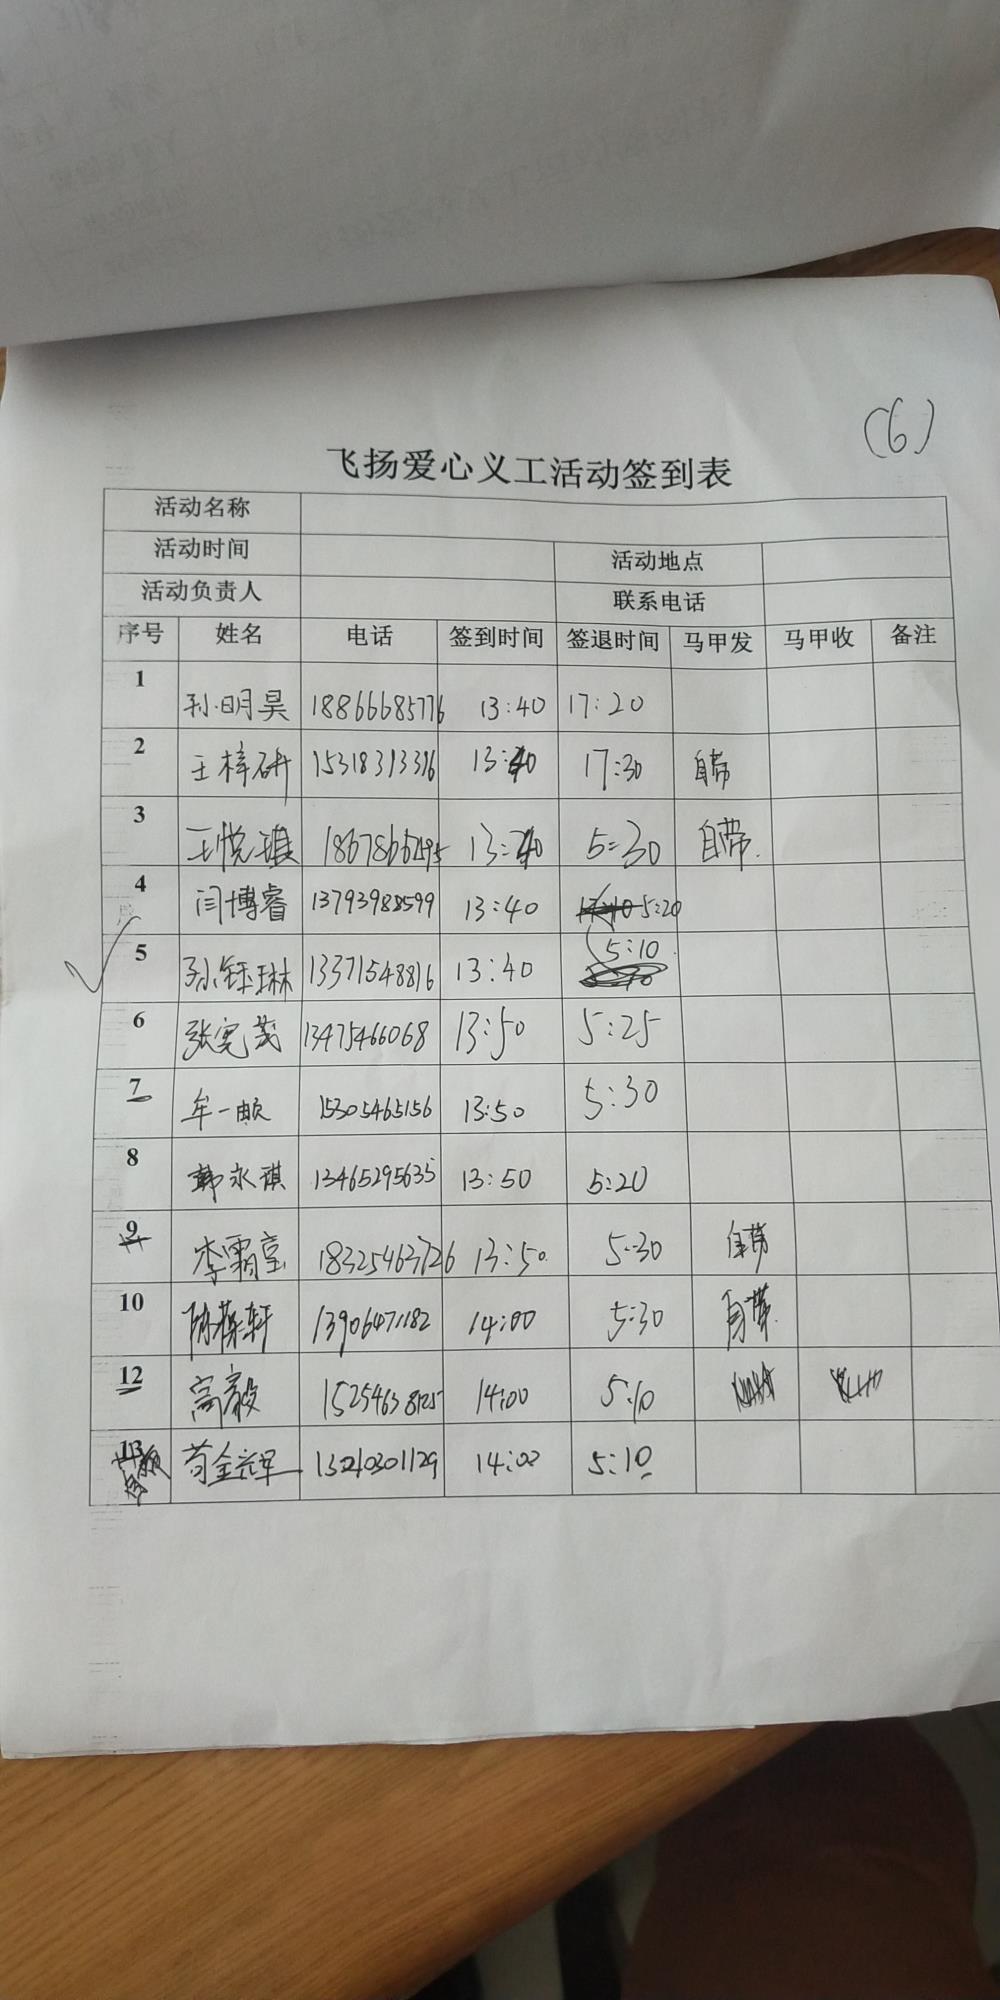 (6)
飞扬爱心义工活动签到表
活动名称
活动时间 活动地点
活动负责人 联系电话
序号 姓名 电话 签到时间 签退时间 马甲发 马甲收 备注
1 孙明昊 18866685776 13:40 17:20
2 王梓研 15318313316 13:40 17:30 自带
3 王悦 13:40 5:30 自带.
4 闫博睿 13793988599 13:40 5:20
5 孙钰琳 13371548816 13:40 5:10
6 张宪茂 13475466068 13:50 5:25
7 牟一 15305465156 13:50 5:30
8 韩永琪 13465295635 13:50 5:20
9 李霸 18325463726 13:50. 5:30 自带
10 轩 13906471182 14:00 5:30 自带.
12 高毅 15254638125 14:00 5:10
13 苟金辉 14:00 5:10